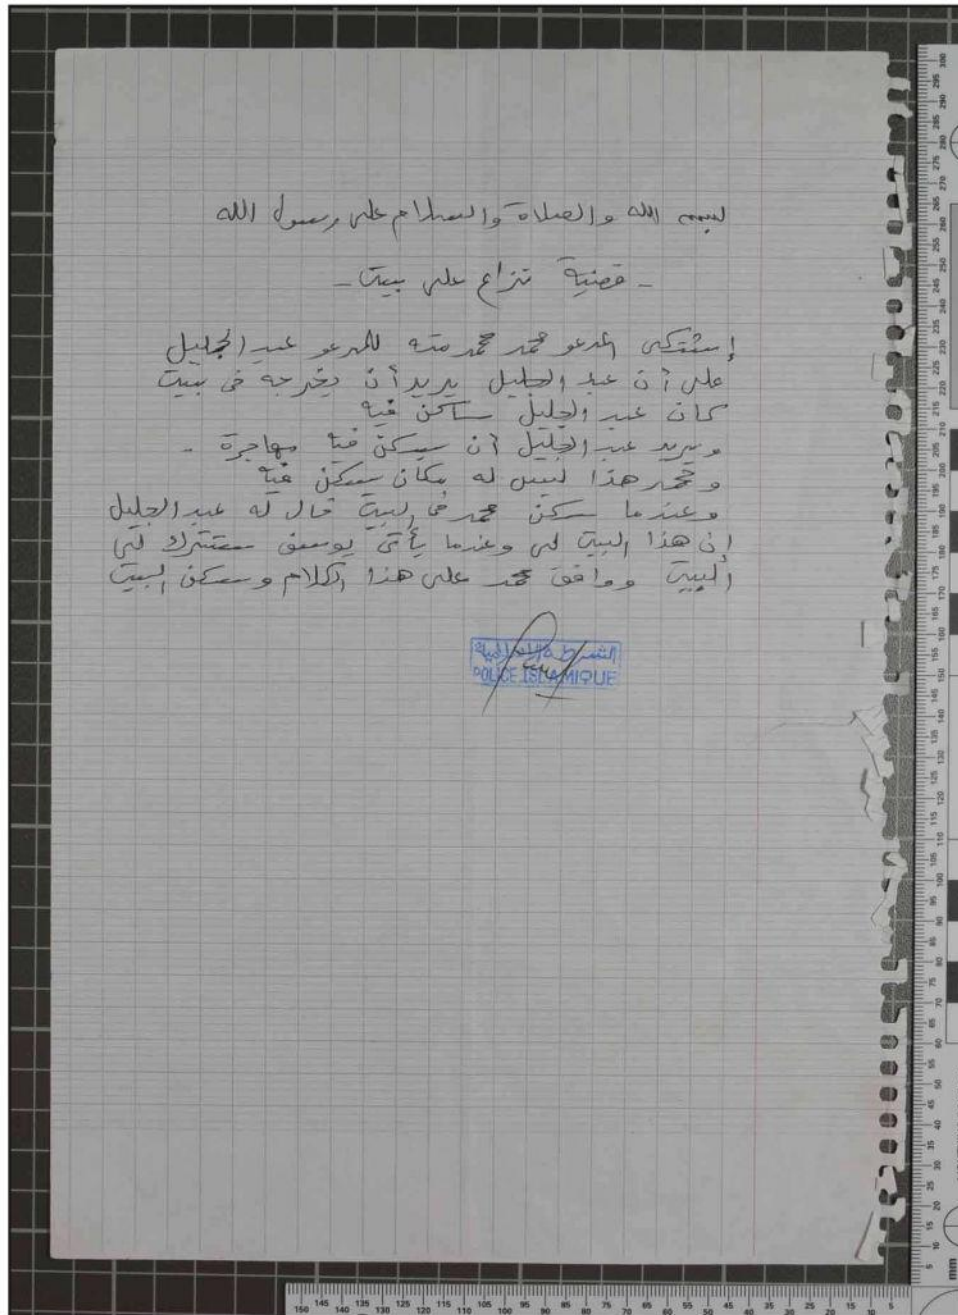 بسم الله والصلاة والسلام على رسول الله
- قضية نزاع على بيت -
إشتكى المدعو محمد محمد للمدعو عبد الجليل
على أن عبد الجليل يريد أن يخرجه في بيت
كان عبد الجليل ساكن فيه
ويريد عبد الجليل أن يسكن مهاجرة -
ومحمد هذا ليس له مكان يسكن فيه
وعندما سكن محمد في البيت قال له عبد الجليل
إن هذا البيت لي وعندما يأتي يوسف ستترك لي
البيت ووافق محمد على هذا الكلام وسكن البيت
الشرطة الإسلامية
POLICE ISLAMIQUE